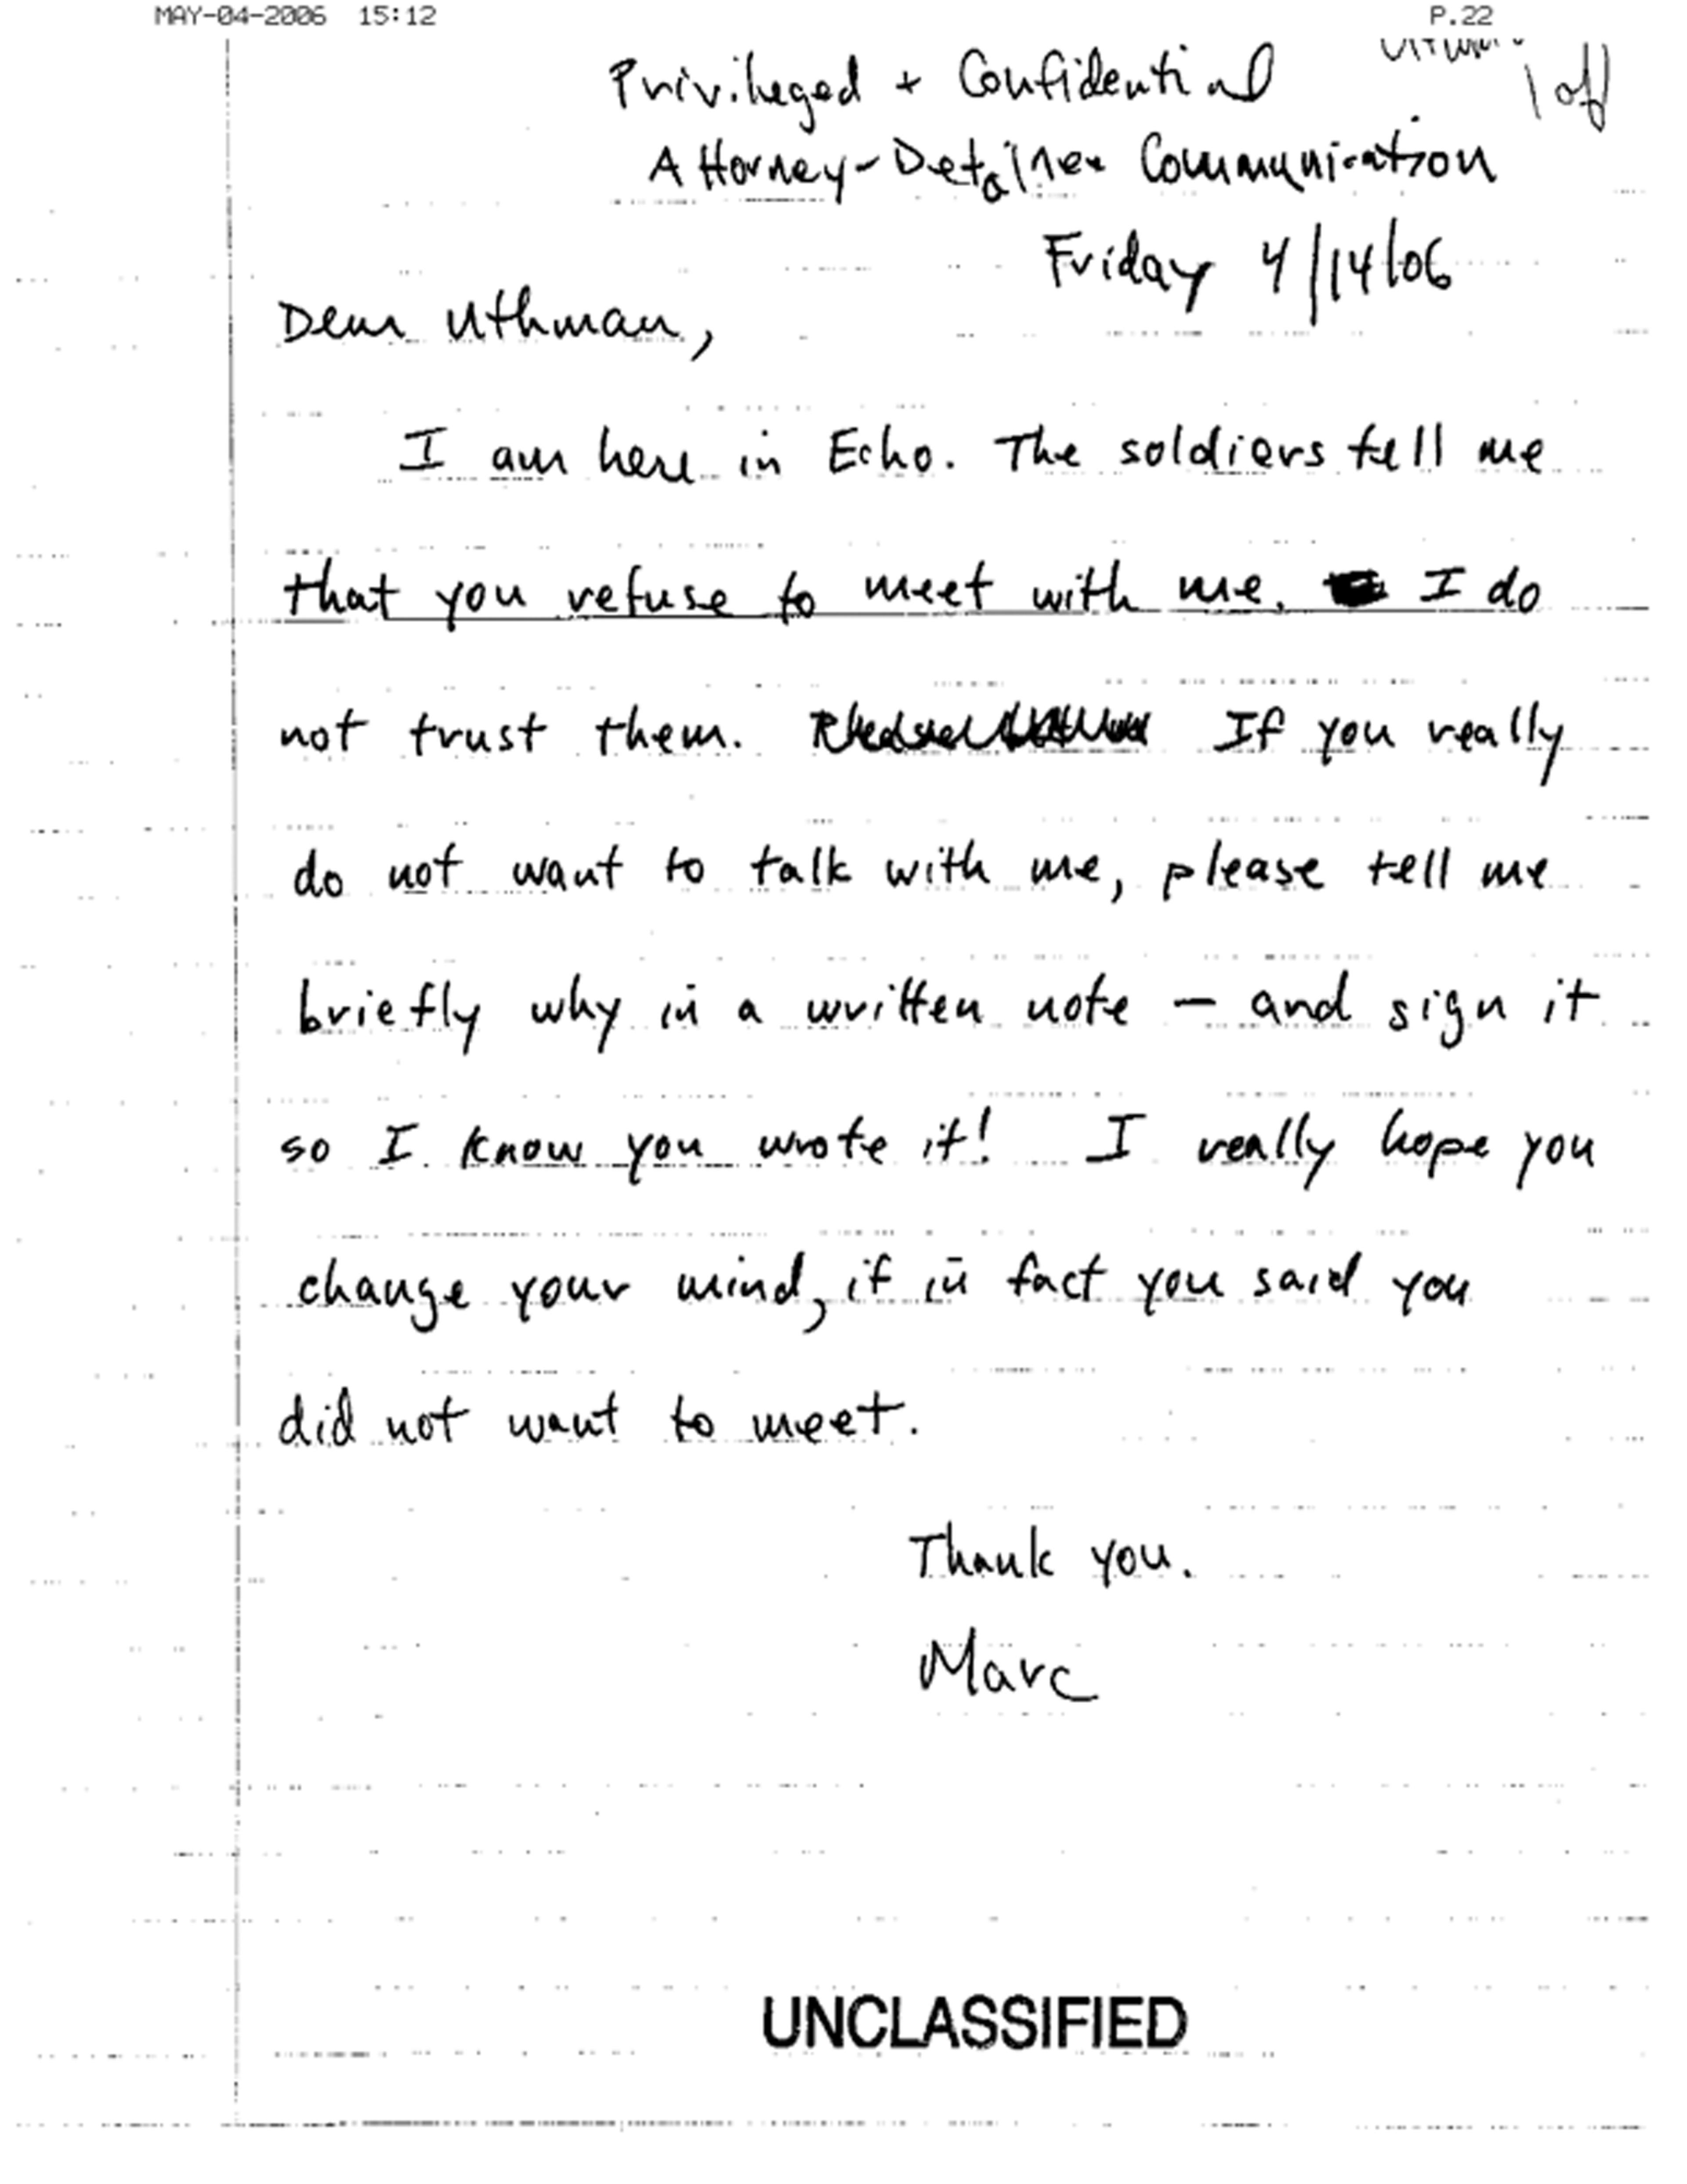 MAY-04-2006 15:12 P.22
Privileged + Confidential
1 of
Attorney-Detainee Communication
Friday 4/14/06
Dear Uthman,
I am here in Echo. The soldiers tell me
that you refuse to meet with me. I do
not trust them. If you really
do not want to talk with me, please tell me
briefly why in a written note - and sign it
so I know you wrote it! I really hope you
change your mind, if in fact you said you
did not want to meet.
Thank you.
Marc
UNCLASSIFIED